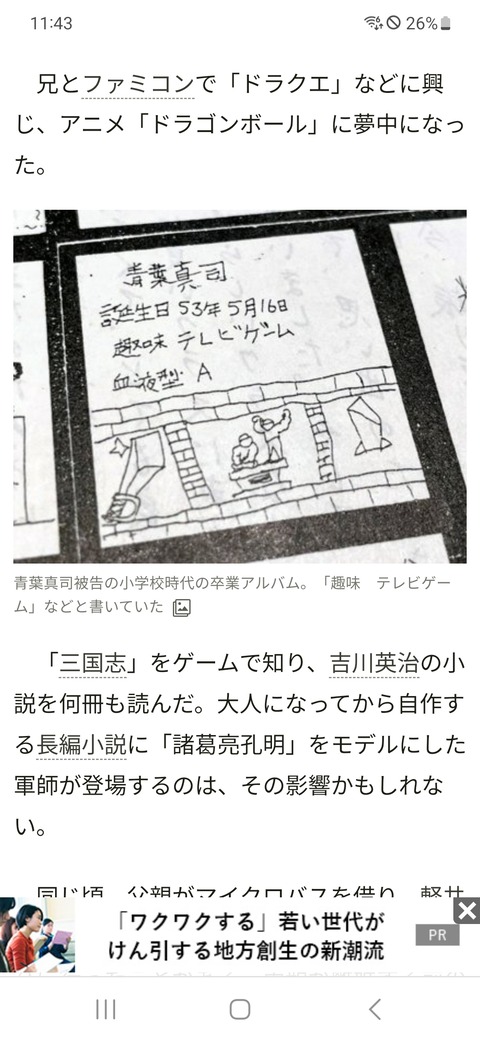 11:43
26%
兄とファミコンで「ドラクエ」などに興
じ、アニメ「ドラゴンボール」に夢中になっ
た。
青葉真司
誕生日 53年 5月16日
趣味 テレビゲーム
血液型 A
青葉真司被告の小学校時代の卒業アルバム。「趣味　テレビゲー
ム」などと書いていた
「三国志」をゲームで知り、吉川英治の小
説を何冊も読んだ。大人になってから自作す
る長編小説に「諸葛亮孔明」をモデルにした
軍師が登場するのは、その影響かもしれな
い。
同じ頃、父親がマイクロバスを借り、軽井
「ワクワクする」若い世代が
けん引する地方創生の新潮流
PR